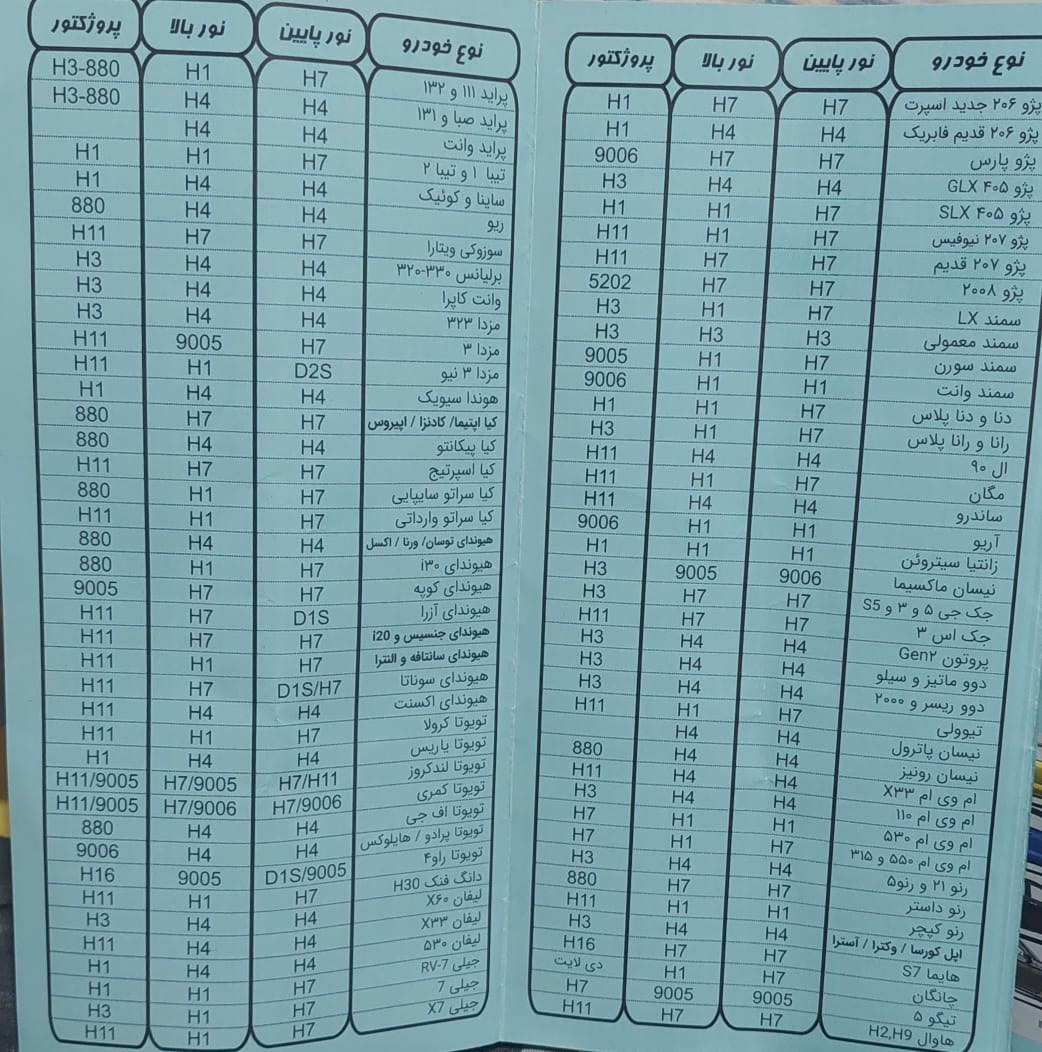 نوع خودرو نور پایین نور بالا پروژکتور
پژو ۲۰۶ جدید اسپرت H7 H7 H1
پژو ۲۰۶ قدیم فابریک H4 H4 H1
پژو پارس H7 H7 9006
پژو ۴۰۵ GLX H4 H4 H3
پژو ۴۰۵ SLX H7 H1 H1
پژو ۲۰۷ نیوفیس H7 H1 H11
پژو ۲۰۷ قدیم H7 H7 H11
پژو ۲۰۰۸ H7 H7 5202
سمند LX H7 H1 H3
سمند معمولی H3 H3 H3
سمند سورن H7 H1 9005
سمند وانت H1 H1 9006
دنا و دنا پلاس H7 H1 H1
رانا و رانا پلاس H7 H1 H3
ال ۹۰ H4 H4 H11
مگان H7 H1 H11
ساندرو H4 H4 H11
آریو H1 H1 9006
زانتیا سیتروئن H1 H1 H1
نیسان ماکسیما 9006 9005 H3
جک جی ۵ و ۳ و S5 H7 H7 H3
جک اس ۳ H7 H7 H11
پروتون Gen۲ H4 H4 H3
دوو ماتیز و سیلو H4 H4 H3
دوو ریسر و ۲۰۰۰ H4 H4 H3
تیوولی H7 H1 H11
نیسان پاترول H4 H4
نیسان رونیز H4 H4 880
ام وی ام X۳۳ H4 H4 H11
ام وی ام ۱۱۰ H4 H4 H3
ام وی ام ۵۳۰ H1 H1 H7
ام وی ام ۵۵۰ و ۳۱۵ H7 H1 H7
رنو ۲۱ و رنو۵ H4 H4 H3
رنو داستر H7 H7 880
رنو کپچر H1 H1 H11
اپل کورسا / وکترا / آسترا H4 H4 H3
هایما S7 H7 H7 H16
چانگان H7 H1 دی لایت
تیگو ۵ 9005 9005 H7
هاوال H2,H9 H7 H7 H11
نوع خودرو نور پایین نور بالا پروژکتور
پراید ۱۱۱ و ۱۳۲ H7 H1 H3-880
پراید صبا و ۱۳۱ H4 H4 H3-880
پراید وانت H4 H4
تیبا ۱ و تیبا ۲ H7 H1 H1
ساینا و کوئیک H4 H4 H1
ریو H4 H4 880
سوزوکی ویتارا H7 H7 H11
برلیانس ۳۳۰-۳۲۰ H4 H4 H3
وانت کاپرا H4 H4 H3
مزدا ۳۲۳ H4 H4 H3
مزدا ۳ H7 9005 H11
مزدا ۳ نیو D2S H1 H11
هوندا سیویک H4 H4 H1
کیا اپتیما/ کادنزا / اپیروس H7 H7 880
کیا پیکانتو H4 H4 880
کیا اسپرتیج H7 H7 H11
کیا سراتو سایپایی H7 H1 880
کیا سراتو وارداتی H7 H1 H11
هیوندای توسان/ ورنا / اکسل H4 H4 880
هیوندای i۳۰ H7 H1 880
هیوندای کوپه H7 H7 9005
هیوندای آزرا D1S H7 H11
هیوندای جنسیس و i20 H7 H7 H11
هیوندای سانتافه و النترا H7 H1 H11
هیوندای سوناتا D1S/H7 H7 H11
هیوندای اکسنت H4 H4 H11
تویوتا کرولا H7 H1 H11
تویوتا یاریس H4 H4 H1
تویوتا لندکروز H7/H11 H7/9005 H11/9005
تویوتا کمری H7/9006 H7/9006 H11/9005
تویوتا اف جی H4 H4 880
تویوتا پرادو / هایلوکس H4 H4 9006
تویوتا راو۴ D1S/9005 9005 H16
دانگ فنک H30 H7 H1 H11
لیفان X۶۰ H4 H4 H3
لیفان X۳۳ H4 H4 H11
لیفان ۵۳۰ H4 H4 H1
جیلی RV-7 H7 H1 H1
جیلی 7 H7 H1 H3
جیلی X7 H7 H1 H11